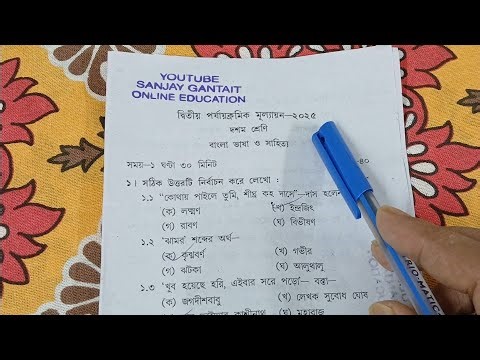 YOUTUBE
SANJAY GANTAIT
ONLINE EDUCATION
দ্বিতীয় পর্যায়ক্রমিক মূল্যায়ন-২০২৫
দশম শ্রেণি
বাংলা ভাষা ও সাহিত্য
সময়-১ ঘণ্টা ৩০ মিনিট ৪০
১। সঠিক উত্তরটি নির্বাচন করে লেখো :
১.১ "কোথায় পাইলে তুমি, শীঘ্র কহ দাসে"-দাস হলেন
(ক) লক্ষ্মণ (খ) ইন্দ্রজিৎ
(গ) রাবণ (ঘ) বিভীষণ
১.২ 'ঝামর' শব্দের অর্থ-
(ক) কৃষ্ণবর্ণ (খ) গভীর
(গ) ঝটকা (ঘ) আলুথালু
১.৩ 'খুব হয়েছে হরি, এইবার সরে পড়ো'- বক্তা-
(ক) জগদীশবাবু (খ) লেখক সুবোধ ঘোষ
কাশীনাথ (ঘ) মহারাজ